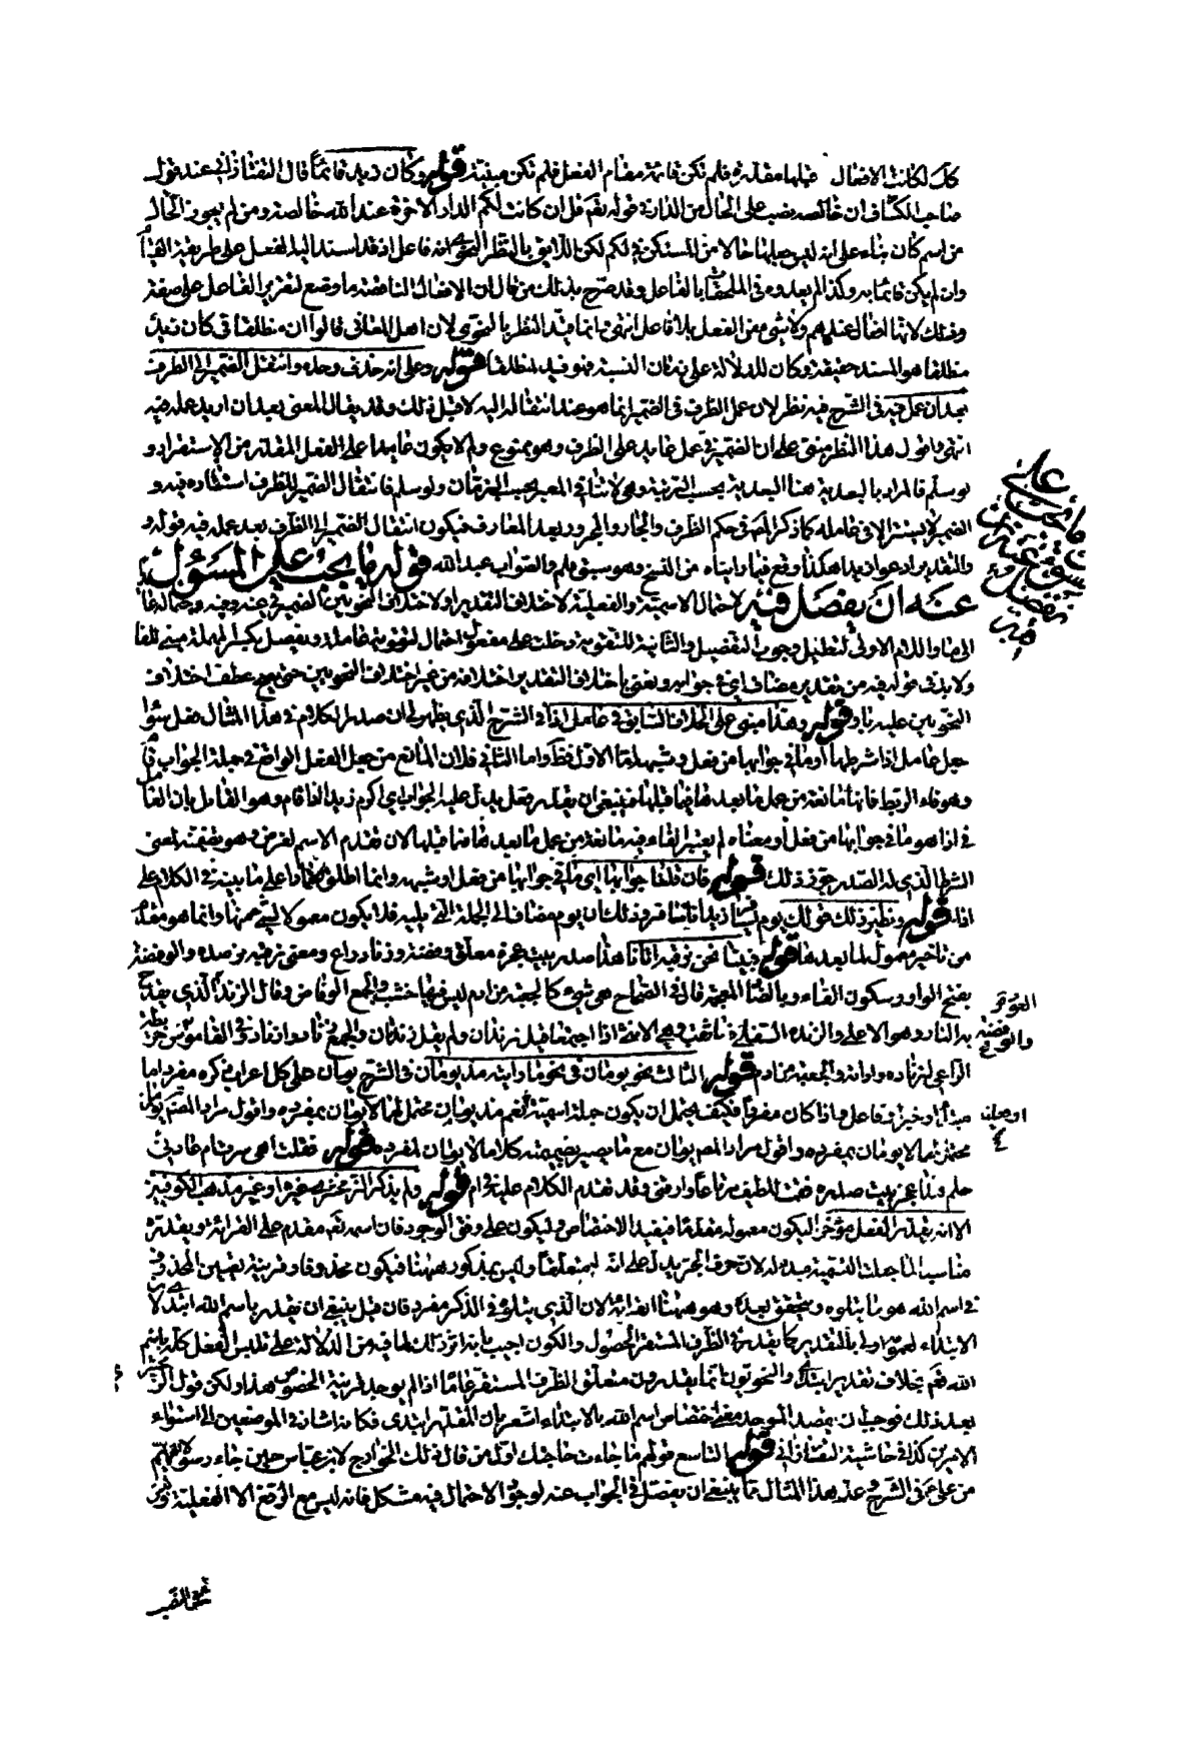 كان لكانت الافعال قبلها مقدرة فلم تكن قائمة مقام الفعل فلم تكن مبقية قوله وكان زيد قائماً قال التفتازاني عند قول
صاحب الكشاف ان خالصة نصب على الحال من الدار في قوله تعم قل ان كانت لكم الدار الاخرة عند الله خالصة ومن لم يجوز الحال
من اسم كان بناء على انه ليس جعلها حالا من المستكن في لكم لكن اللايق بالنظر النحوي انه فاعل اذ قد اسند اليه الفعل على طريقة القيام
وان لم يكن قائما به ولذا لم يعدوه في الملحقات بالفاعل وقد صرح بذلك من قال ان الافعال الناقصة ما وضع لتقرير الفاعل على صفة
وذلك لانها افعال عندهم ولا شيء من الفعل بلا فاعل انتهى وانما قيد النظر بالنحوي لان اهل المعاني قالوا ان منطلقا في كان زيد
منطلقا هو المسند حقيقة وكان للدلالة على زمان النسبة فهو قيد لمنطلقا قوله وعلى انه حذف وحده وانتقل الضمير الى الظرف
بعد ان عمل فيه في الشرح فيه نظر لان عمل الظرف في الضمير انما هو عند انتقاله اليه لا قبل ذلك وقد يقال المعنى بعد ان اريد عمله فيه
انتهى واقول هذا النظر مبني على ان الضمير في عمل عايد على الظرف وهو ممنوع ولم لا يكون عايدا على الفعل المقدر من الاستقرار و
لو سلم فالمراد بالبعدية هنا البعدية بحسب الرتبة وهي لا تنافي المعية بحسب الزمان ولو سلم فانتقال الضمير للظرف استتاره فيه و
الضمير لا يستتر الا في عامله كما ذكر المصنف في حكم الظرف والجار والمجرور بعد المعارف فيكون انتقال الضمير الى الظرف بعد عمله فيه قوله و
والتقدير ادعوا زيدا هكذا وقع فيما رايناه من النسخ وهو سبق قلم والصواب عبد الله قوله ما يجب على المسؤل
عنه ان يفصل فيه لاحتمال الاسمية والفعلية لاختلاف التقدير او لاختلاف النحويين الضمير في عنه وفيه
الى ما واللام الاولى لتعليل وجوب التفصيل والثانية للتقوية دخلت على مفعول احتمال لتقوية عامله ويفصل بكسر المهملة مبني للفاعل
ولا بد في قوله فيه من تقدير مضاف اي في جوابه ونعني باختلاف التقدير اختلافه من غير اختلاف النحويين حتى يصح عطف اختلاف
النحويين عليه باو قوله وهذا مبني على الخلاف السابق في عامل اذا في الشرح الذي يظهر لي ان صدر الكلام في هذا المثال فعل سواء
جعل عامل اذا شرطها او ما في جوابها من فعل وشبهه اما الاول فظ واما الثاني فلان المانع من جعل الفعل الواقع في جملة الجواب
وهو فاء الربط فانها مانعة من عمل ما بعدها فيما قبلها فينبغي ان يقدر فعل يدل عليه الجواب اي اكرم زيد اذا قام وهو القايل بان العامل
في اذا هو ما في جوابها من فعل او معناه لم يعتبر الفاء فيه مانعة من عمل ما بعدها فيما قبلها لان تقديم الاسم لغرض وهو تضمنه لمعنى
الشرط الذي له الصدر جوز ذلك قوله فان قلنا جوابها اي ما في جوابها من فعل او شبهه وانما اطلق اعتمادا على ما بينه في الكلام على
اذا قوله ونظير ذلك قولك يوم يسافر زيد انا مسافر وذلك ان يوم مضاف الى الجملة التي يليه فلا يكون معمولا لشيء منها وانما هو مقدم
من تاخير معمول لما بعدها قوله فبينا نحن نرقبه اتانا هذا صدر بيت عجزه معلق وفضة وزناد راع ومعنى نرقبه نرصده والوفضة
بفتح الواو وسكون الفاء وبالضاد المعجمة قال في الصحاح هي شيء كالجعبة من ادم ليس فيها خشب والجمع الوفاض وقال الزند الذي يقدح
به النار وهو الاعلى والزندة السفلى فيها ثقب وهي الانثى اذا اجتمعا قيل زندان ولم يقل زندتان والجمع زناد وازناد في القاموس
الراعي لزناده واداته والجعبة من ادم قوله الثالث نحو يومان في نحو ما رايته مذ يومان في الشرح يومان على كل اعراب ذكره مفرد اما
مبتدأ او خبر او فاعل واذا كان مفردا فكيف يحتمل ان يكون جملة اسمية نعم مذ يومان محتمل لها لا يومان بمفرده واقول مراد المصنف يومان
محتمل لهما لا يومان بمفرده واقول مراد المصنف يومان مع ما يصير بضميمته كلاما لا يومان لمفرده قوله فقلت اهي سرت ام عادني
حلم هذا عجز بيت صدره فقمت للطيف مرتاعا وارقني وقد تقدم الكلام عليه في ام قوله ولم يذكر الزمخشري غيره اي غير مذهب الكوفيين
الا انه يقدر الفعل مؤخرا ليكون معموله مقدما فيفيد الاختصاص وليكون على وفق الوجود فان اسمه تعم مقدم على القراءة ويقدره
مناسبا لما جعلت التسمية مبدء له لان حرف الجر يدل على ان له متعلقا وليس بمذكور ههنا فيكون محذوفا وقرينة تعيين المحذوف
في اسم الله هو ما يتلوه ويتحقق بعده وهو ههنا القراءة لان الذي يتلوه في الذكر مفرد فان قيل ينبغي ان يقدر باسم الله ابتدئ لان
الابتداء لعمومه اولى بالتقدير كما يقدر في الظرف المستقر الحصول والكون اجيب بانه انما ترك ذلك لما فيه من الدلالة على تلبس الفعل كله باسم
الله تعم بخلاف تقدير ابتدئ والنحويون انما يقدرون متعلق الظرف المستقر عاما اذا لم يوجد قرينة الخصوص هذا ولكن قول الزمخشري
بعد ذلك فوجب ان يقصد الموحد معنى اختصاص اسم الله بالابتداء اشعر بان المقدر ابتدئ فكانه اشار في الموضعين الى استواء
الامرين كذا في حاشية التفتازاني قوله التاسع قولهم ما جاءت حاجتك اول من قال ذلك الخوارج لابن عباس حين جاء رسولا اليهم
من علي رض في الشرح عد هذا المثال مما ينبغي ان يفصل في الجواب عنه لوجود الاحتمال فيه مشكل فانه ليس مع الرفع الا الفعلية